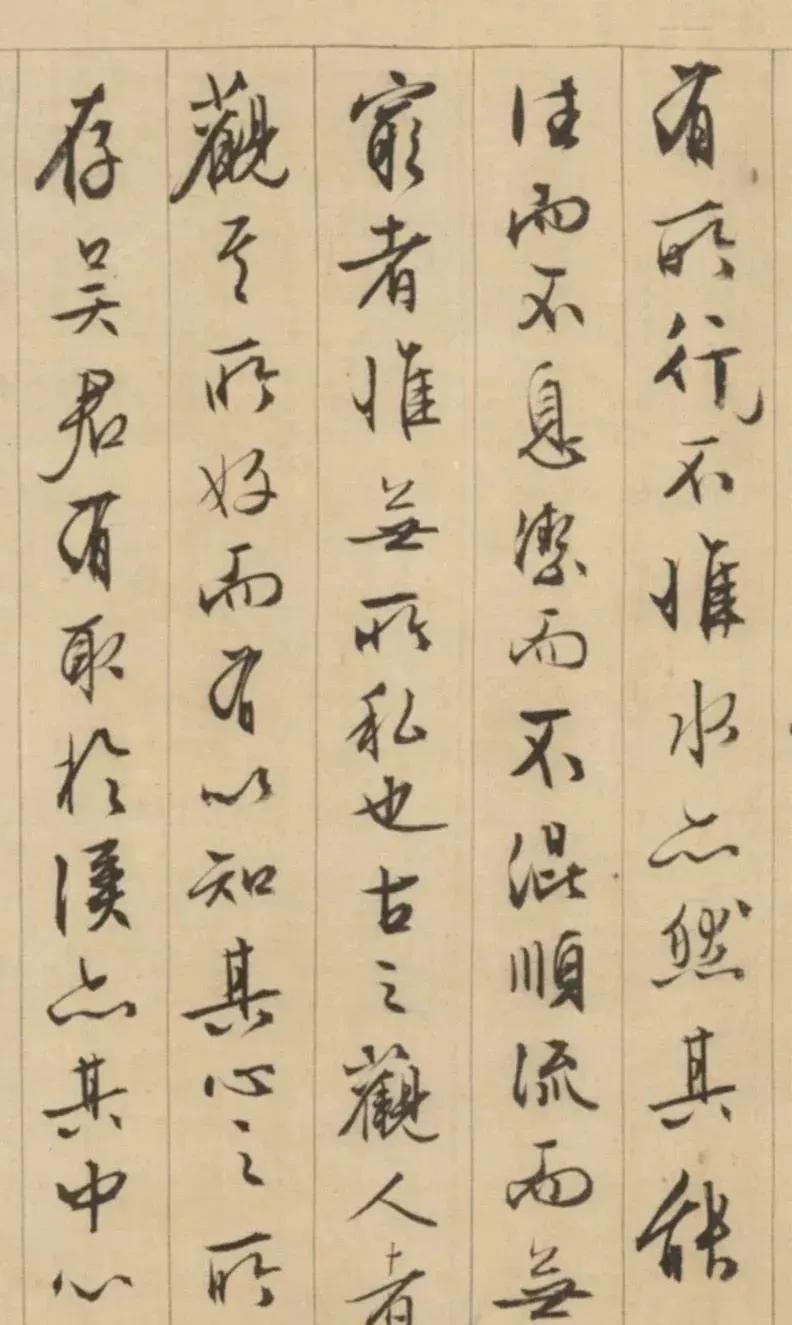 有所行不惟水亦然其能
往而不息潔而不混順流而無
窮者惟無所私也古之觀人者
觀其所好而有以知其心之所
存吴君有取於溪亦其中心